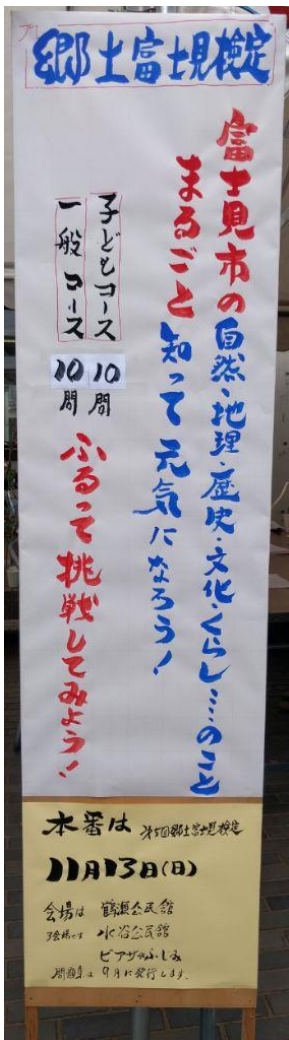 プレ
郷土富士見検定
富士見市の自然・地理・歴史・文化・くらし……のこと
まるごと知って元気になろう！
子どもコース 10問
一般コース 10問
ふるって挑戦してみよう！
本番は 第5回郷土富士見検定
11月13日(日)
会場は 鶴瀬公民館
水谷公民館
ピアザ☆ふじみ
問題集は 9月に発行します。